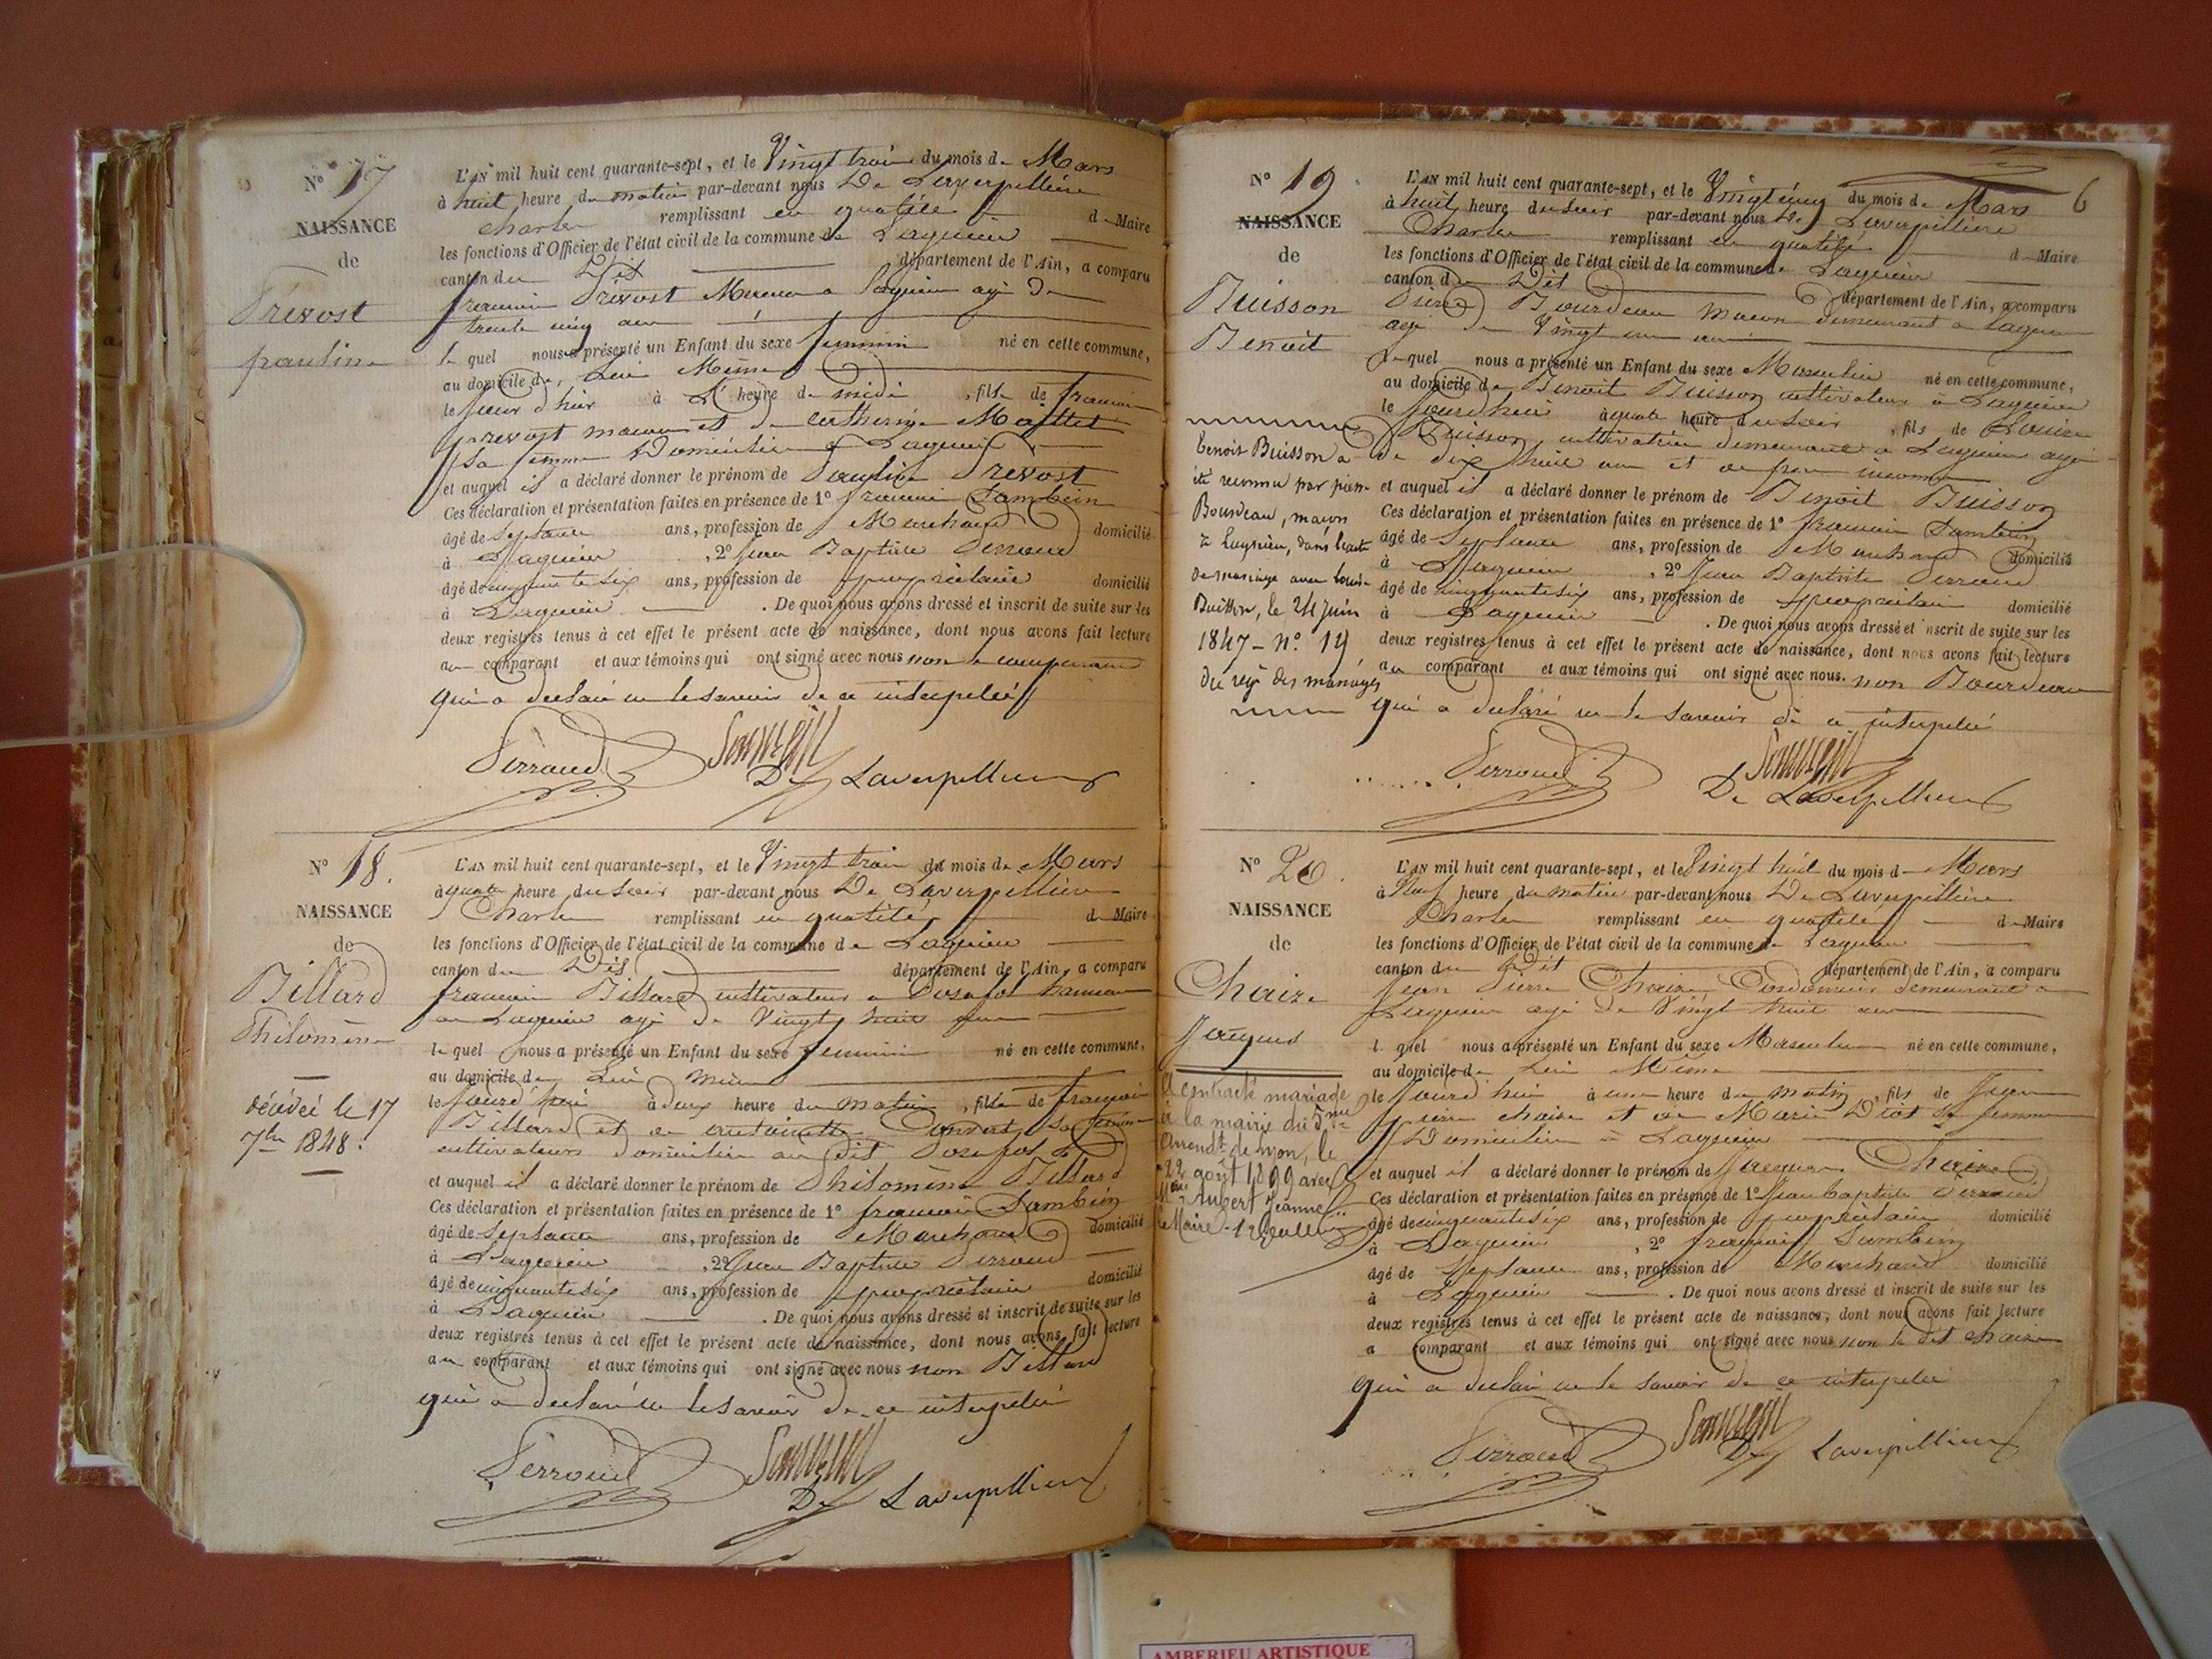 N° 17
NAISSANCE
de
Prevost
pauline
L'AN mil huit cent quarante-sept, et le Vingt trois du mois de Mars
à huit heure du matin par-devant nous De Laverpillière
Charles remplissant en qualité de Maire
les fonctions d'Officier de l'état civil de la commune de Lagnieu
canton du Dit département de l'Ain, a comparu
francois Prevost Macon a Lagnieu agé de
trente cinq ans
lequel nous a présenté un Enfant du sexe feminin né en cette commune,
au domicile de Lui Même
le jour d'hier à L' heure de midi, fille de francois
prevost macon et de catherine Maillet
sa femme Domiciliés a Lagnieu
et auquel il a déclaré donner le prénom de Pauline Prevost
Ces déclaration et présentation faites en présence de 1° francois Sambin
âgé de Septante ans, profession de Marchand domicilié
à Lagnieu, 2° Jean Baptiste Perroud
âgé de cinquante six ans, profession de propriétaire domicilié
à Lagnieu. De quoi nous avons dressé et inscrit de suite sur les
deux registres tenus à cet effet le présent acte de naissance, dont nous avons fait lecture
au comparant et aux témoins qui ont signé avec nous non le comparant
qui a declaré ne le savoir de ce interpellé
Perroud
De Laverpilliere
N° 18.
NAISSANCE
de
Billard
Philomène
décédée le 17
7bre 1848.
L'AN mil huit cent quarante-sept, et le Vingt trois du mois de Mars
à quatre heure du Soir par-devant nous De Laverpillière
Charles remplissant en qualité de Maire
les fonctions d'Officier de l'état civil de la commune de Lagnieu
canton du Dit département de l'Ain, a comparu
francois Billard cultivateur a Posafol hameau
de Lagnieu agé de Vingt huit ans
lequel nous a présenté un Enfant du sexe feminin né en cette commune,
au domicile de Lui même
le jourd'hui à deux heure du matin, fille de francois
Billard et de antoinette Convert sa femme
cultivateurs domiciliés au dit Posafol
et auquel il a déclaré donner le prénom de Philomène Billard
Ces déclaration et présentation faites en présence de 1° francois Sambin
âgé de Septante ans, profession de Marchand domicilié
à Lagnieu, 2° Jean Baptiste Perroud
âgé de cinquante six ans, profession de propriétaire domicilié
à Lagnieu. De quoi nous avons dressé et inscrit de suite sur les
deux registres tenus à cet effet le présent acte de naissance, dont nous avons fait lecture
au comparant et aux témoins qui ont signé avec nous non Billard
qui a declaré ne le savoir de ce interpellé
Perroud
De Laverpilliere
6
N° 19
NAISSANCE
de
Buisson
Benoit
benoit Buisson a
été reconnu par pierre
Bourdeau, maçon
à Lagnieu, dans l'acte
de mariage avec Louise
Buisson, le 24 juin
1847 - N° 14
du reg. des mariages
L'AN mil huit cent quarante-sept, et le Vingt cinq du mois de Mars
à huit heure du soir par-devant nous De Laverpillière
Charles remplissant en qualité de Maire
les fonctions d'Officier de l'état civil de la commune de Lagnieu
canton du Dit département de l'Ain, a comparu
Pierre Bourdeau macon demeurant a Lagnieu
agé de Vingt un ans
lequel nous a présenté un Enfant du sexe Masculin né en cette commune,
au domicile de Benoit Buisson cultivateur a Lagnieu
le jourd'hui à quatre heure du soir, fils de Louise
Buisson cultivatrice demeurant a Lagnieu agée
de dix huit ans et de pere inconnu
et auquel il a déclaré donner le prénom de Benoit Buisson
Ces déclaration et présentation faites en présence de 1° francois Sambin
âgé de Septante ans, profession de Marchand domicilié
à Lagnieu, 2° Jean Baptiste Perroud
âgé de cinquante six ans, profession de propriétaire domicilié
à Lagnieu. De quoi nous avons dressé et inscrit de suite sur les
deux registres tenus à cet effet le présent acte de naissance, dont nous avons fait lecture
au comparant et aux témoins qui ont signé avec nous. non Bourdeau
qui a declaré ne le savoir de ce interpellé
Perroud
De Laverpilliere
N° 20.
NAISSANCE
de
Chaize
Jacques
A contracté mariage
à la mairie du 5me
Arrondt de Lyon, le
22 août 1899 avec
Aubert Jeanne
Le Maire
L'AN mil huit cent quarante-sept, et le Vingt huit du mois de Mars
à Neuf heure du matin par-devant nous De Laverpillière
Charles remplissant en qualité de Maire
les fonctions d'Officier de l'état civil de la commune de Lagnieu
canton du Dit département de l'Ain, a comparu
Jean Pierre Chaize Cordonnier demeurant a
Lagnieu agé de Vingt huit ans
lequel nous a présenté un Enfant du sexe Masculin né en cette commune,
au domicile de Lui Même
le Jourd'hui à une heure du matin, fils de Jean
pierre chaize et de Marie Diot sa femme
Domiciliés a Lagnieu
et auquel il a déclaré donner le prénom de Jacques Chaize
Ces déclaration et présentation faites en présence de 1° Jean baptiste Perroud
âgé de cinquante six ans, profession de propriétaire domicilié
à Lagnieu, 2° francois Sambin
âgé de Septante ans, profession de Marchand domicilié
à Lagnieu. De quoi nous avons dressé et inscrit de suite sur les
deux registres tenus à cet effet le présent acte de naissance, dont nous avons fait lecture
a comparant et aux témoins qui ont signé avec nous non le dit chaize
qui a declaré ne le savoir de ce interpellé
Perroud
De Laverpilliere
AMBERIEU ARTISTIQUE